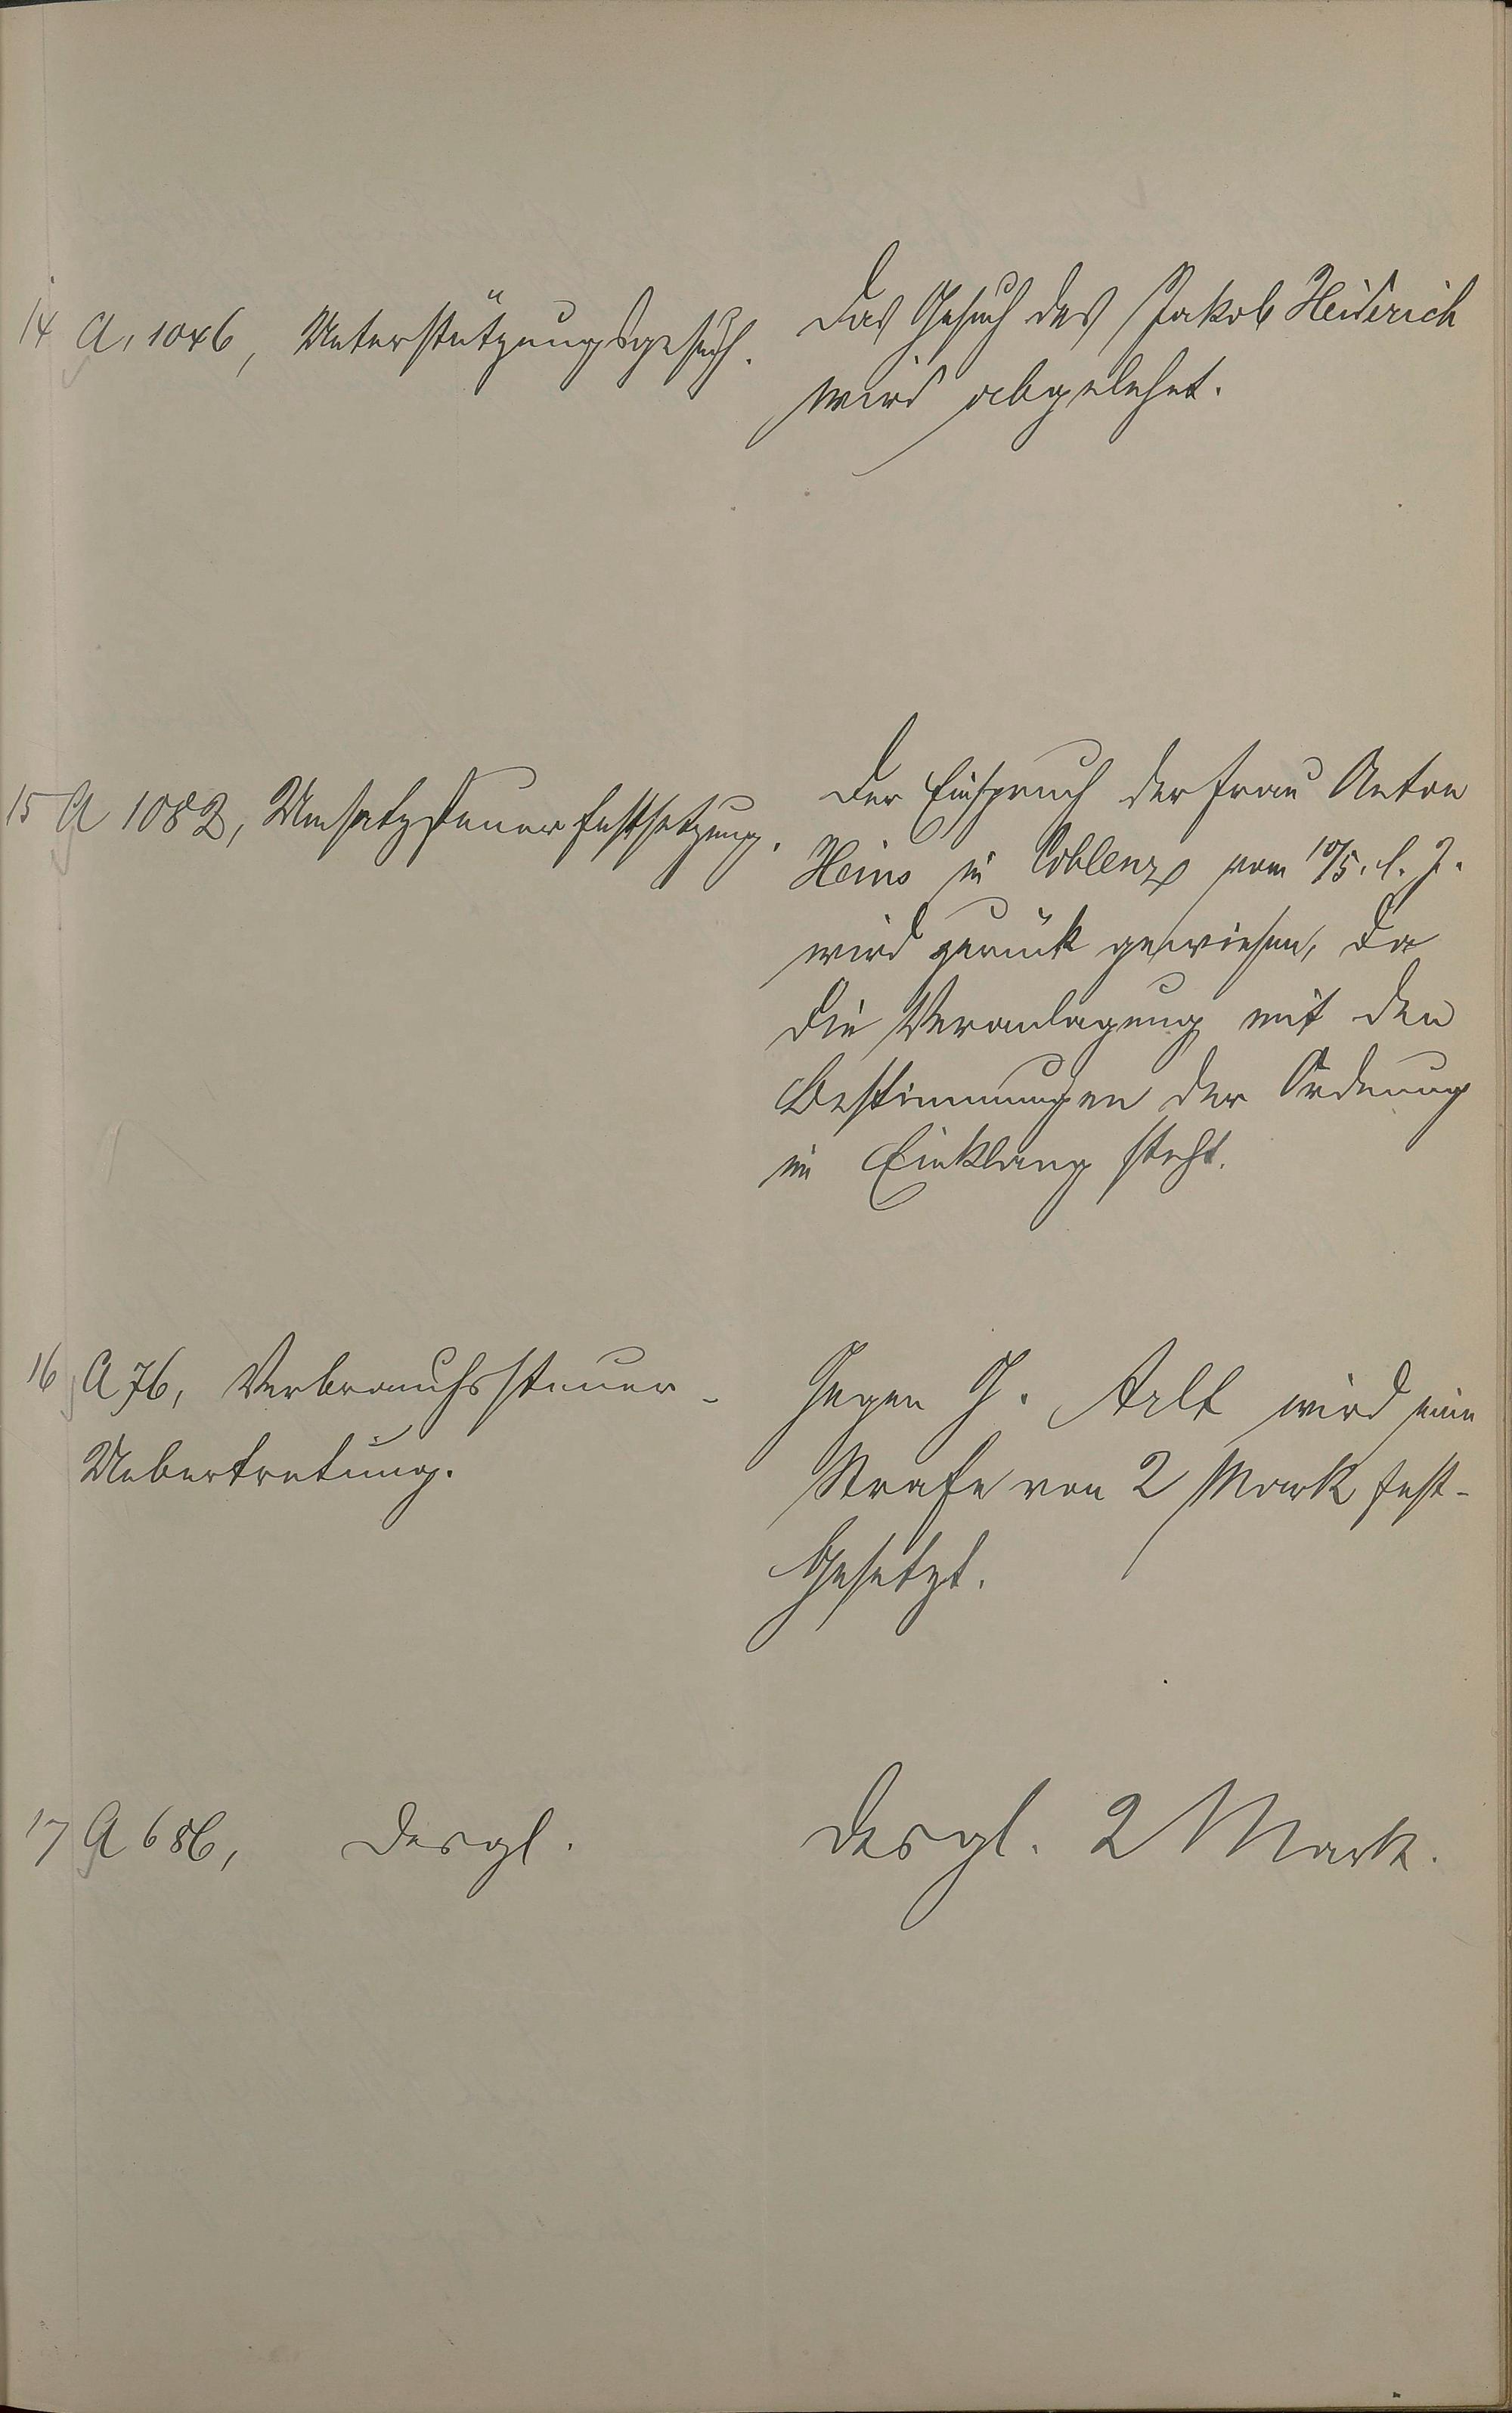 14 A. 1046, Unterstützungsgesuch.
Das Gesuch des Jakob Heiderich
wird abgelehnt.
15 A 1082, Umsatzsteuerfestsetzung.
Der Einspruch der Frau Anton
Heins in Coblenz vom 10/5. l. J.
wird zurück gewiesen, da
die Veranlagung mit den
Bestimmungen der Ordnung
im Einklang steht.
16 A 76, Verbrauchssteuer-
Uebertretung.
Gegen J. Arlt wird eine
Strafe von 2 Mark fest-
gesetzt.
17 A 686, desgl.
desgl. 2 Mark.